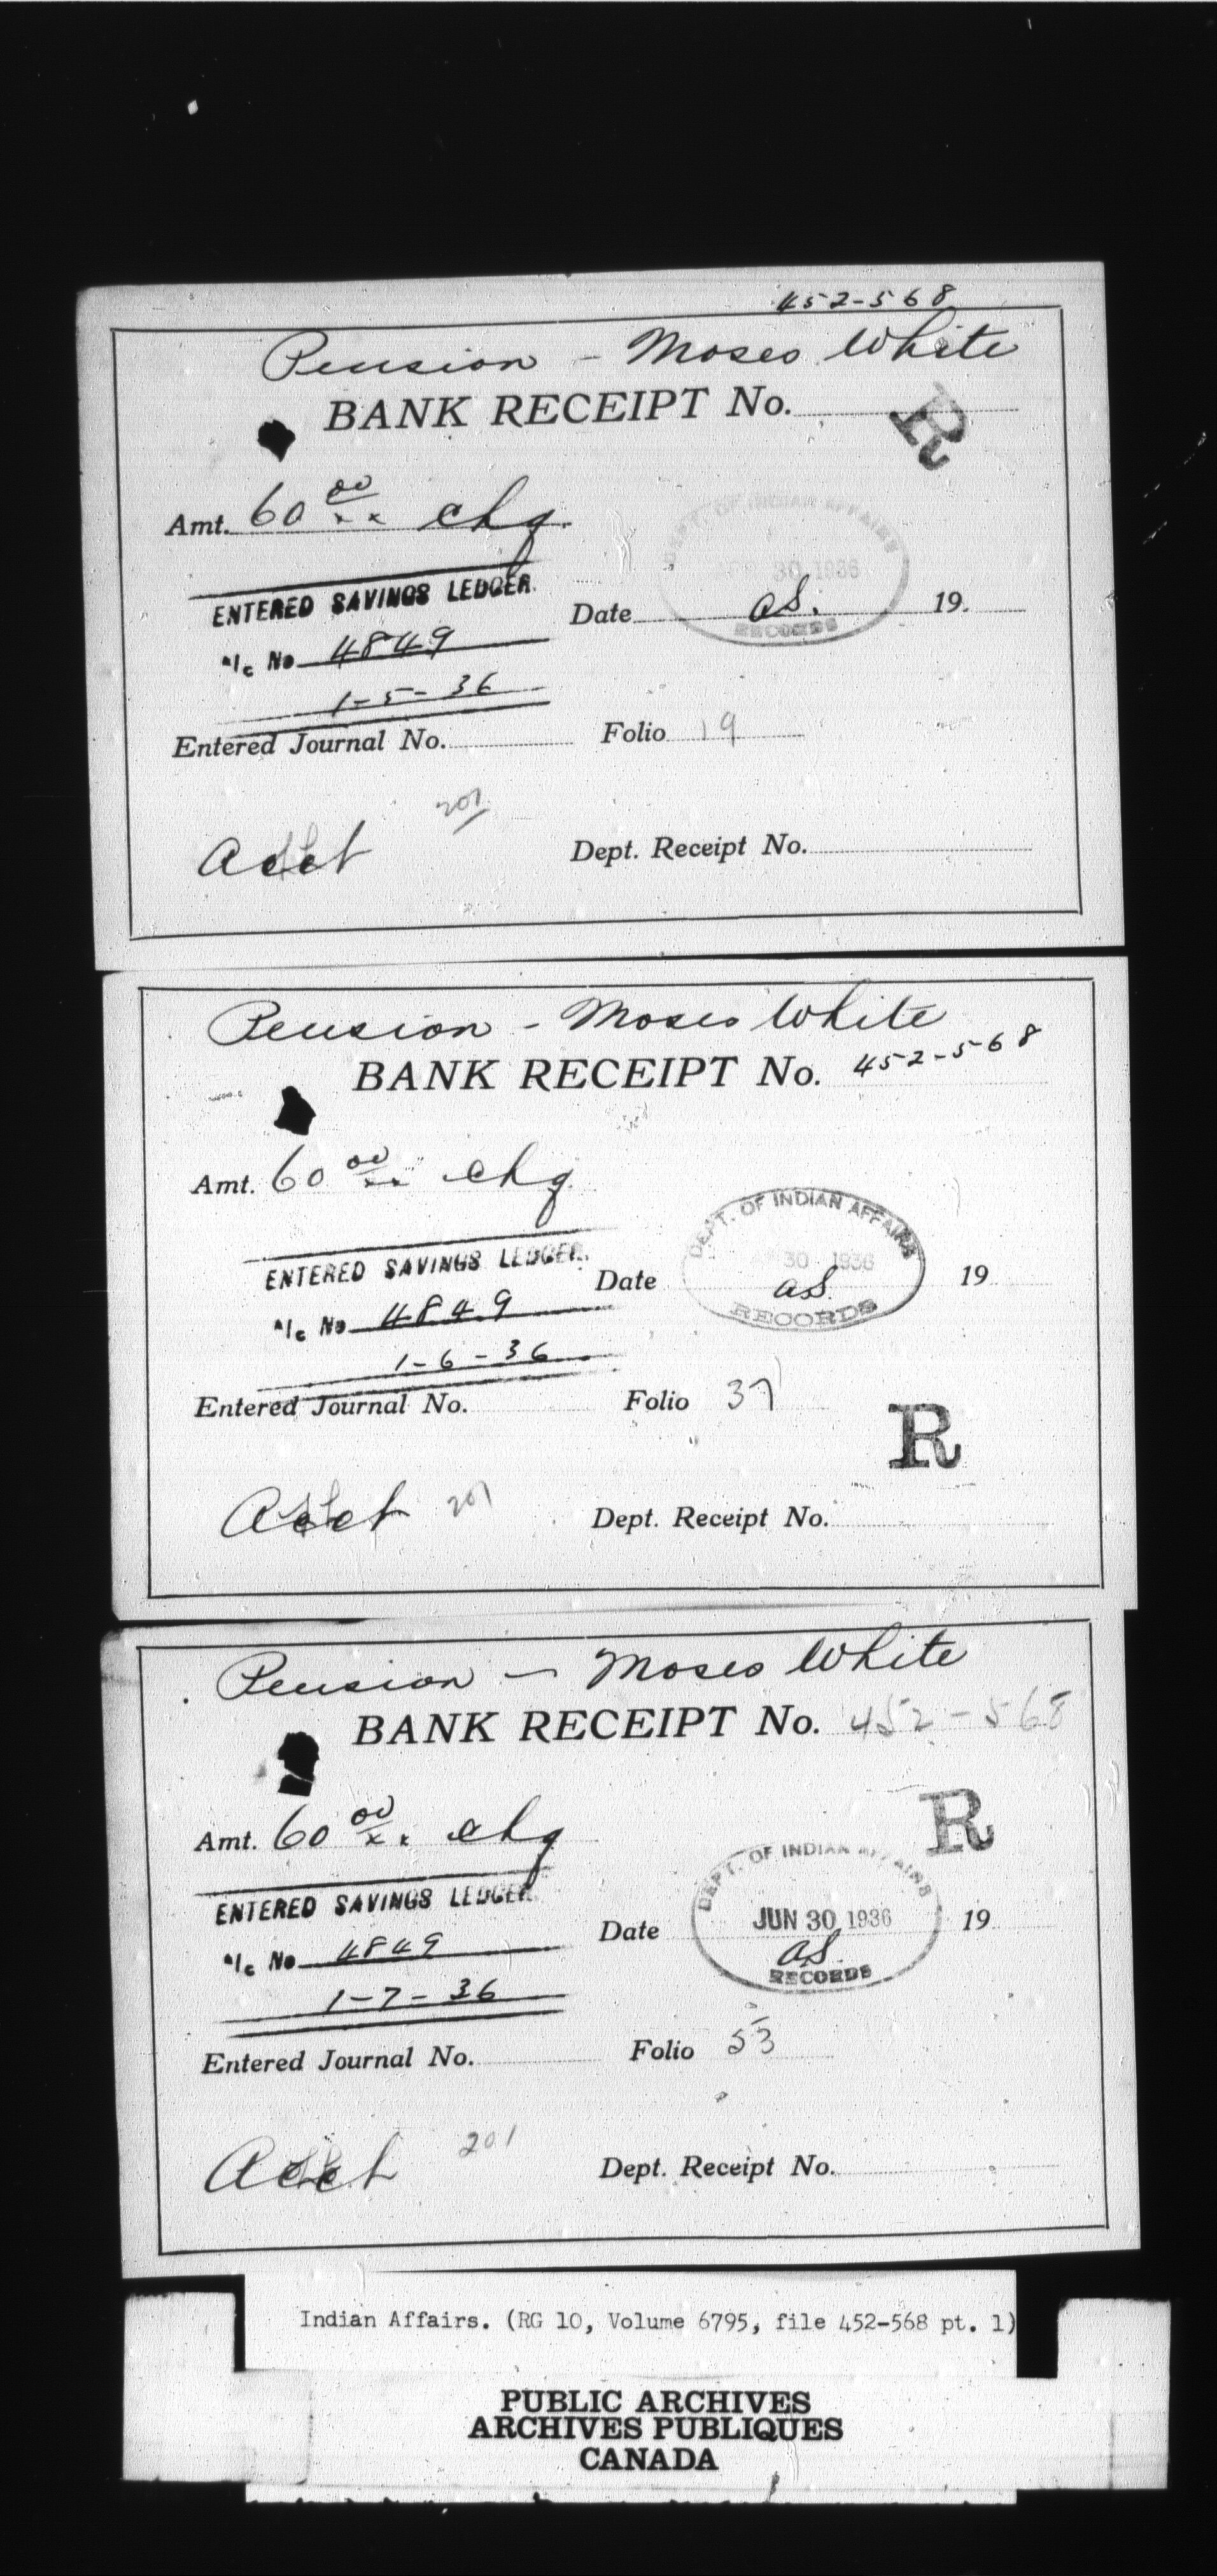 452-568
Pension - Moses White
BANK RECEIPT No.
R
Amt. 60 00/xx chq.
DEPT. OF INDIAN AFFAIRS
30 1936
ENTERED SAVINGS LEDGER.
Date as. 19
RECORDS
A/c No 4849
1-5-36
Entered Journal No. Folio 19
201
Acct Dept. Receipt No.
Pension - Moses White
BANK RECEIPT No. 452-568
Amt. 60 00/xx chq
DEPT. OF INDIAN AFFAIRS
30 1936
ENTERED SAVINGS LEDGER.
Date as. 19
RECORDS
A/c No 4849
1-6-36
Entered Journal No. Folio 37
R
Acct 201 Dept. Receipt No.
Pension - Moses White
BANK RECEIPT No. 452-568
R
Amt. 60 00/xx chq
DEPT. OF INDIAN AFFAIRS
ENTERED SAVINGS LEDGER.
JUN 30 1936
Date as. 19
RECORDS
A/c No 4849
1-7-36
Entered Journal No. Folio 53
201
Acct Dept. Receipt No.
Indian Affairs. (RG 10, Volume 6795, file 452-568 pt. 1)
PUBLIC ARCHIVES
ARCHIVES PUBLIQUES
CANADA